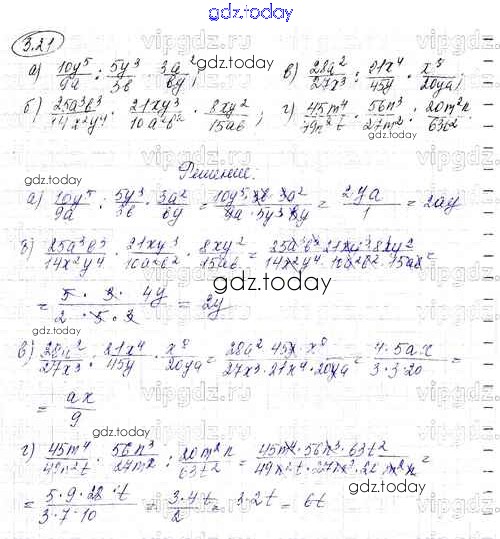 gdz.today
3.21
gdz.today
а) 10y⁵/9a : 5y³/3b · 3a²/by; в) 28a²/27x³ : 21x⁴/45y · x⁸/20ya;
б) 25a³b³/14x²y⁴ · 21xy³/10a²b² · 8xy²/15ab; г) 45m⁴/49n²t · 56n³/27m² : 20m²n/63t².
gdz.today
Решение:
gdz.today
а) 10y⁵/9a : 5y³/3b · 3a²/by = 10y⁵·3b·3a²/9a·5y³·by = 2ya/1 = 2ay
б) 25a³b³/14x²y⁴ · 21xy³/10a²b² · 8xy²/15ab = 25a³b³·21xy³·8xy²/14x²y⁴·10a²b²·15ab =
gdz.today
= 5·3·4y/2·5·3 = 2y
gdz.today
в) 28a²/27x³ : 21x⁴/45y · x⁸/20ya = 28a²·45y·x⁸/27x³·21x⁴·20ya = 4·5ax/3·3·20 =
gdz.today
= ax/9
gdz.today
г) 45m⁴/49n²t · 56n³/27m² : 20m²n/63t² = 45m⁴·56n³·63t²/49n²t·27m²·20m²n =
gdz.today
= 5·9·28·t/3·7·10 = 3·4t/2 = 3·2t = 6t
gdz.today